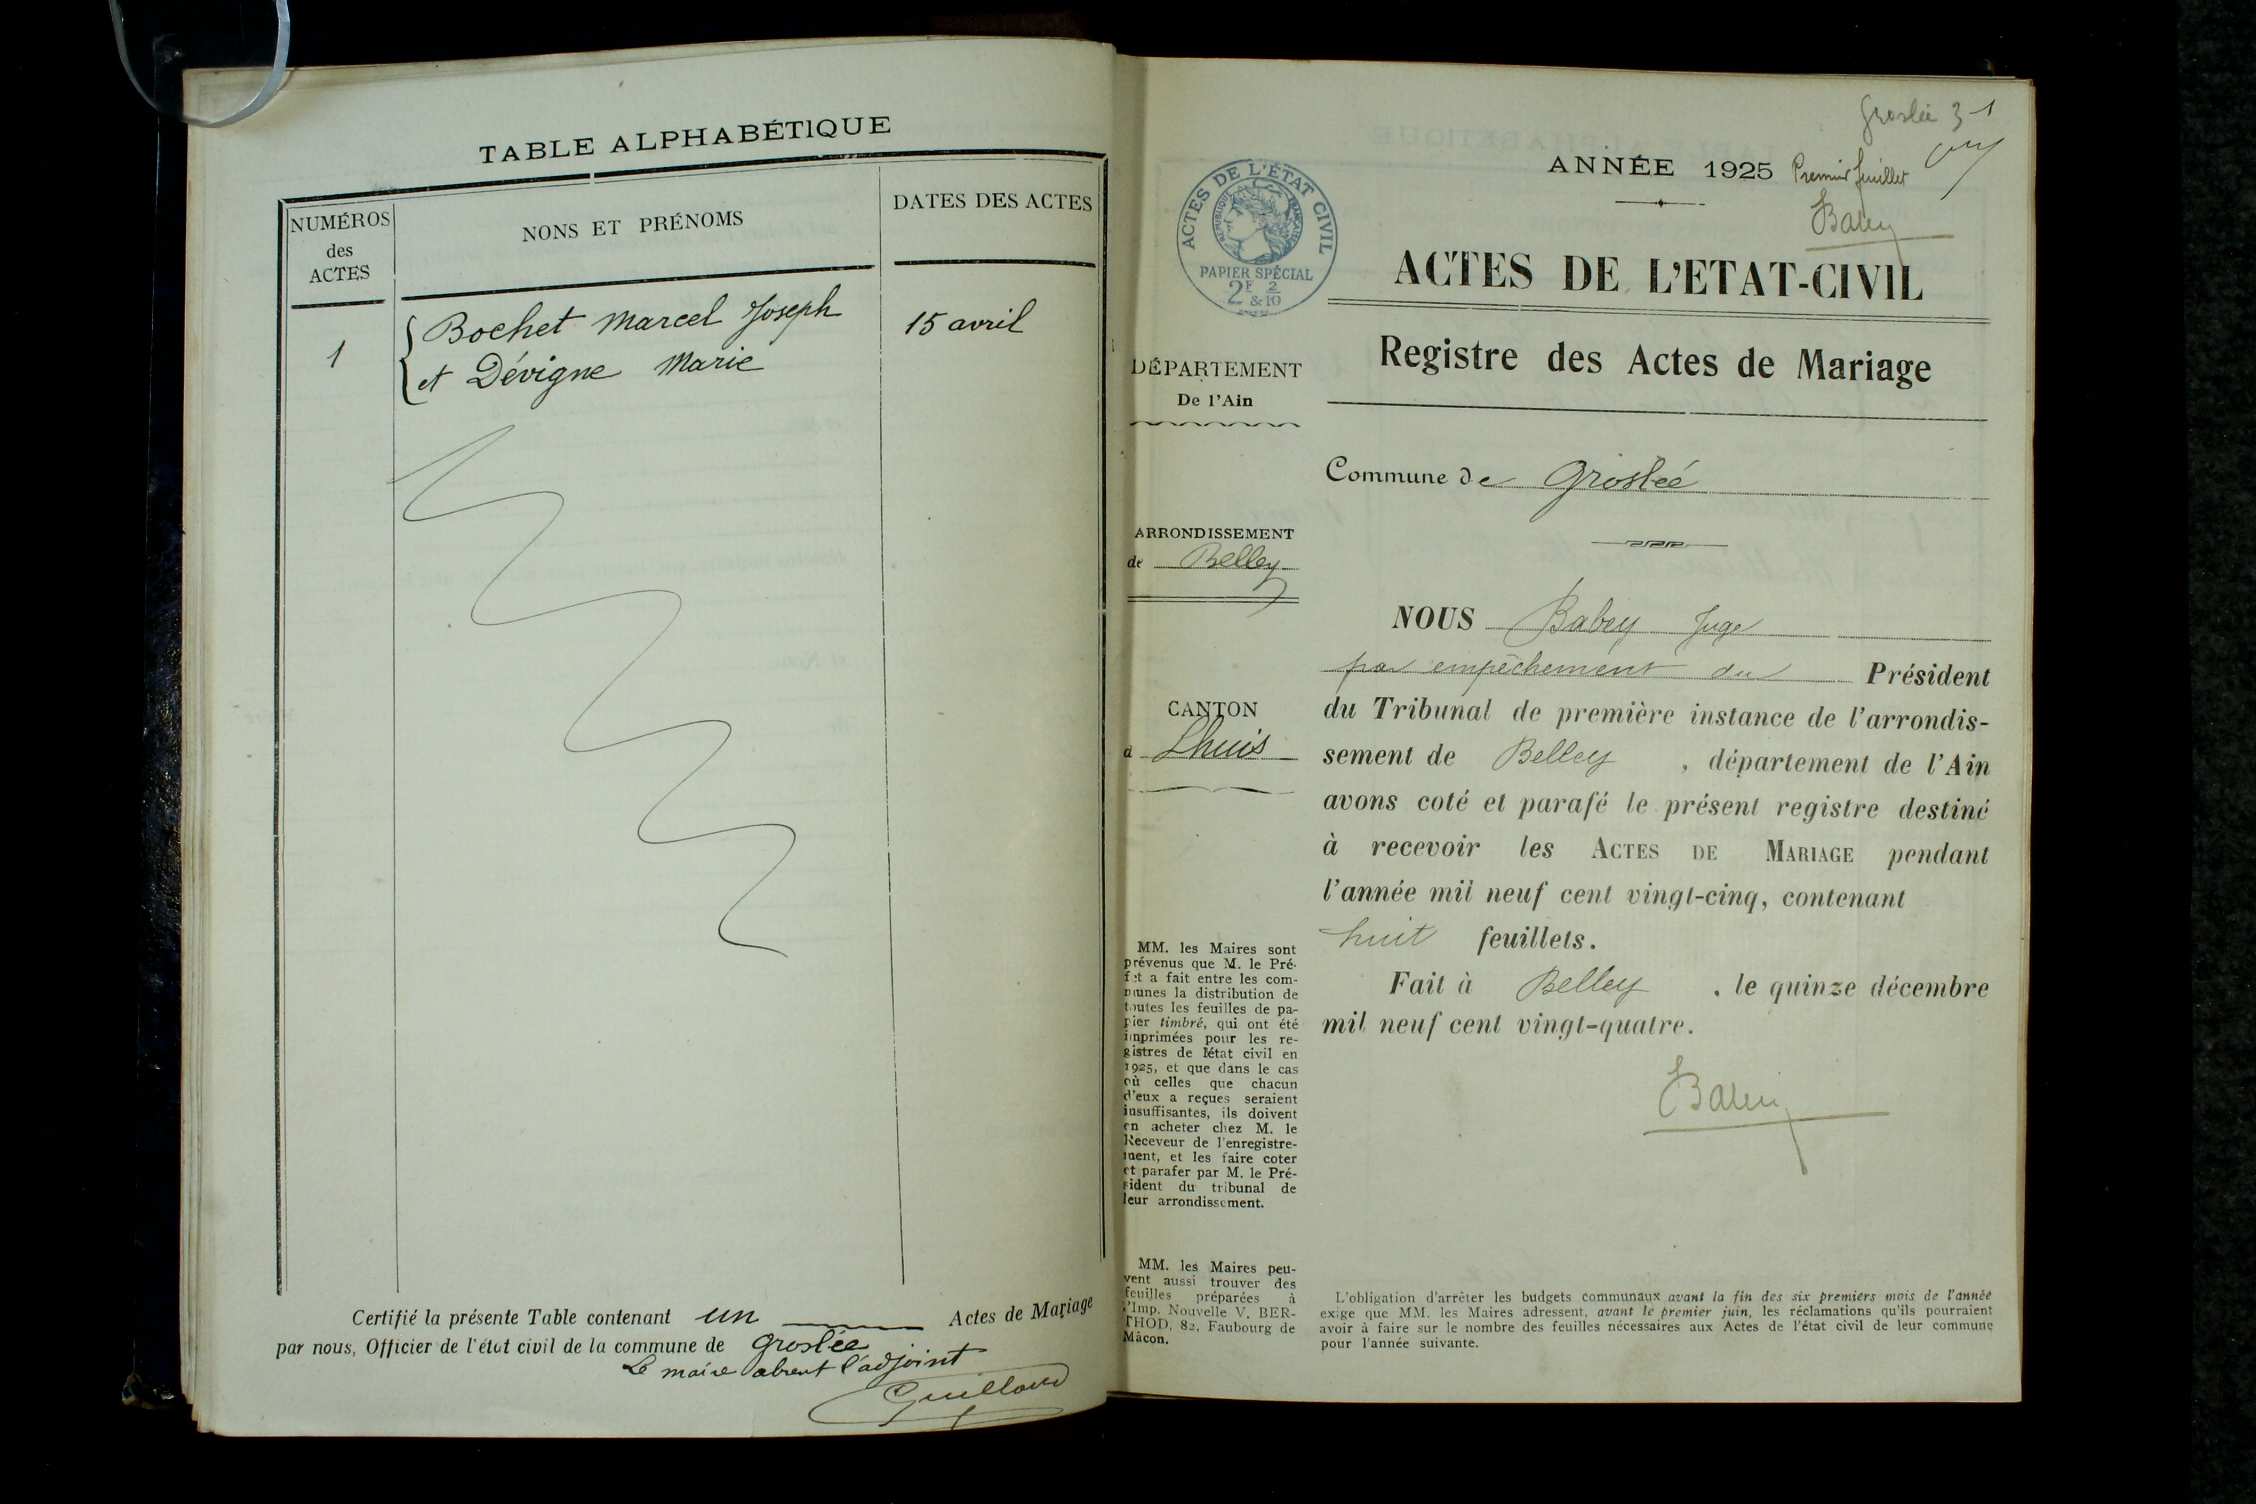 TABLE ALPHABÉTIQUE
NUMÉROS
des
ACTES
NONS ET PRÉNOMS
DATES DES ACTES
1
Bochet Marcel Joseph
et Dévigne Marie
15 avril
Certifié la présente Table contenant un Actes de Mariage
par nous, Officier de l'état civil de la commune de Groslée
Le maire absent l'adjoint
Guilland
Groslée 3-1
ANNÉE 1925 Premier feuillet
Babey
ACTES DE L'ÉTAT CIVIL
RÉPUBLIQUE FRANÇAISE
PAPIER SPÉCIAL
2F & 2/10
ACTES DE L'ETAT-CIVIL
Registre des Actes de Mariage
DÉPARTEMENT
De l'Ain
Commune de Groslée
ARRONDISSEMENT
de Belley
CANTON
d Lhuis
NOUS Babey Juge
par empêchement du Président
du Tribunal de première instance de l'arrondis-
sement de Belley , département de l'Ain
avons coté et parafé le présent registre destiné
à recevoir les ACTES DE MARIAGE pendant
l'année mil neuf cent vingt-cinq, contenant
huit feuillets.
Fait à Belley , le quinze décembre
mil neuf cent vingt-quatre.
Babey
MM. les Maires sont
prévenus que M. le Pré-
fet a fait entre les com-
munes la distribution de
toutes les feuilles de pa-
pier timbré, qui ont été
imprimées pour les re-
gistres de l'état civil en
1925, et que dans le cas
où celles que chacun
d'eux a reçues seraient
insuffisantes, ils doivent
en acheter chez M. le
Receveur de l'enregistre-
ment, et les faire coter
et parafer par M. le Pré-
sident du tribunal de
leur arrondissement.
MM. les Maires peu-
vent aussi trouver des
feuilles préparées à
l'Imp. Nouvelle V. BER-
THOD, 82, Faubourg de
Mâcon.
L'obligation d'arrêter les budgets communaux avant la fin des six premiers mois de l'année
exige que MM. les Maires adressent, avant le premier juin, les réclamations qu'ils pourraient
avoir à faire sur le nombre des feuilles nécessaires aux Actes de l'état civil de leur commune
pour l'année suivante.